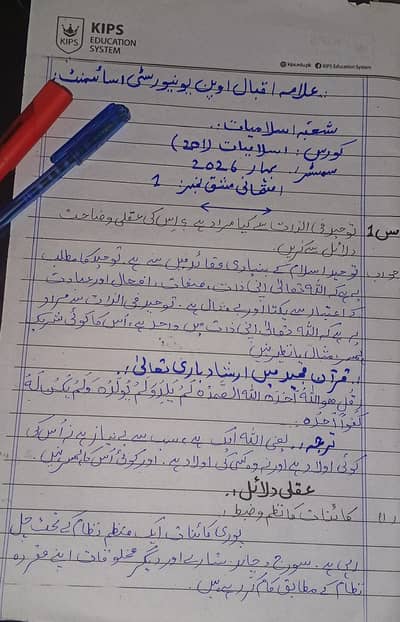 KIPS
EDUCATION
SYSTEM
KIPS
kips.edu.pk KIPS Education System
علامہ اقبال اوپن یونیورسٹی اسائنمنٹ
شعبہ اسلامیات
کورس: اسلامیات (لازمی)
سمسٹر: بہار 2026
امتحانی مشق نمبر: 1
س1 توحید فی الذات سے کیا مراد ہے؟ اس کی عقلی وضاحت
دلائل سے کریں۔
جواب توحید اسلام کے بنیادی عقائد میں سے ہے۔ توحید کا مطلب
یہ ہے کہ اللہ تعالیٰ اپنی ذات، صفات، افعال اور عبادت
کے اعتبار سے یکتا اور بے مثال ہے۔ توحید فی الذات سے مراد
یہ ہے کہ اللہ تعالیٰ اپنی ذات میں واحد ہے، اُس کا کوئی شریک
مثال یا نظیر نہیں
قرآن مجید میں ارشاد باری تعالیٰ
قُلْ هُوَ اللّٰهُ اَحَدٌ اللّٰهُ الصَّمَدُ لَمْ يَلِدْ وَلَمْ يُوْلَدْ وَلَمْ يَكُنْ لَّهٗ
كُفُوًا اَحَدٌ
ترجمہ: یعنی اللہ ایک ہے، سب سے بے نیاز ہے نہ اُس کی
کوئی اولاد ہے اور نہ وہ کسی کی اولاد ہے۔ اور کوئی اُس کا ہمسر نہیں۔
عقلی دلائل
(1) کائنات کا نظم و ضبط
پوری کائنات ایک منظم نظام کے تحت چل
رہی ہے۔ سورج، چاند، ستارے اور دیگر مخلوقات اپنے مقررہ
نظام کے مطابق کام کر رہے ہیں۔